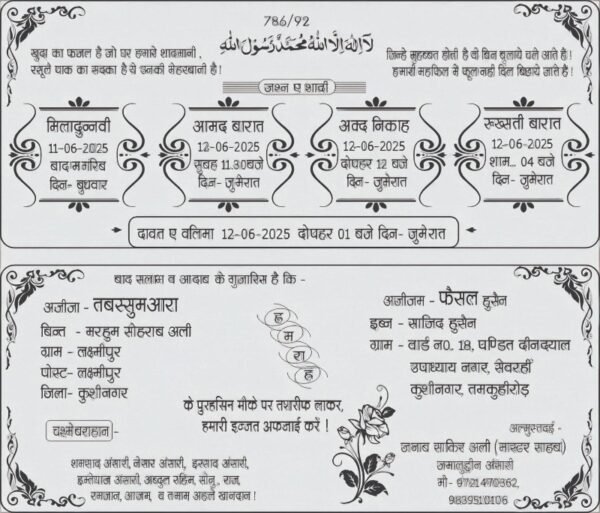 786/92
لا إله إلا الله محمد رسول الله
खुदा का फजल है जो घर हमारे शादमानी,
रसूले पाक का सदका है ये उनकी मेहरबानी है!
जिन्हे मुहब्बत होती है वो बिन बुलाये चले आते है!
हमारी महफिल में फूल नही दिल बिछाये जाते है!
जश्न ए शादी
मिलादुन्नवी
11-06-2025
बाद मगरिब
दिन- बुधवार
आमद बारात
12-06-2025
सुबह 11.30बजे
दिन- जुमेरात
अक्द निकाह
12-06-2025
दोपहर 12 बजे
दिन- जुमेरात
रूख्सती बारात
12-06-2025
शाम.. 04 बजे
दिन- जुमेरात
दावत ए वलिमा 12-06-2025 दोपहर 01 बजे दिन- जुमेरात
बाद सलाम व आदाब के गुजारिस है कि -
अजीजा - तबस्सुमआरा
बिन्त - मरहुम सौहराब अली
ग्राम - लक्ष्मीपुर
पोस्ट- लक्ष्मीपुर
जिला- कुशीनगर
ह
म
रा
ह
अजीजम - फैसल हुसैन
इब्न - साजिद हुसैन
ग्राम - वार्ड न0. 18, पण्डित दीनदयाल
उपाध्याय नगर, सेवरहीं
कुशीनगर, तमकुहीरोड़
के पुरहसिन मौके पर तशरीफ लाकर,
हमारी इज्जत अफजाई करें !
चश्मेबराहान-
शमशाद अंसारी, नेसार अंसारी, इरसाद अंसारी,
इम्तेयाज अंसारी, अब्दुल रहिम, सोनू, राज,
रमजान, आजम, व तमाम अहले खानदान!
अलमुस्तदई -
जनाब साकिर अली (मास्टर साहब)
जमालुद्दीन अंसारी
मो - 9721470362,
9839510106